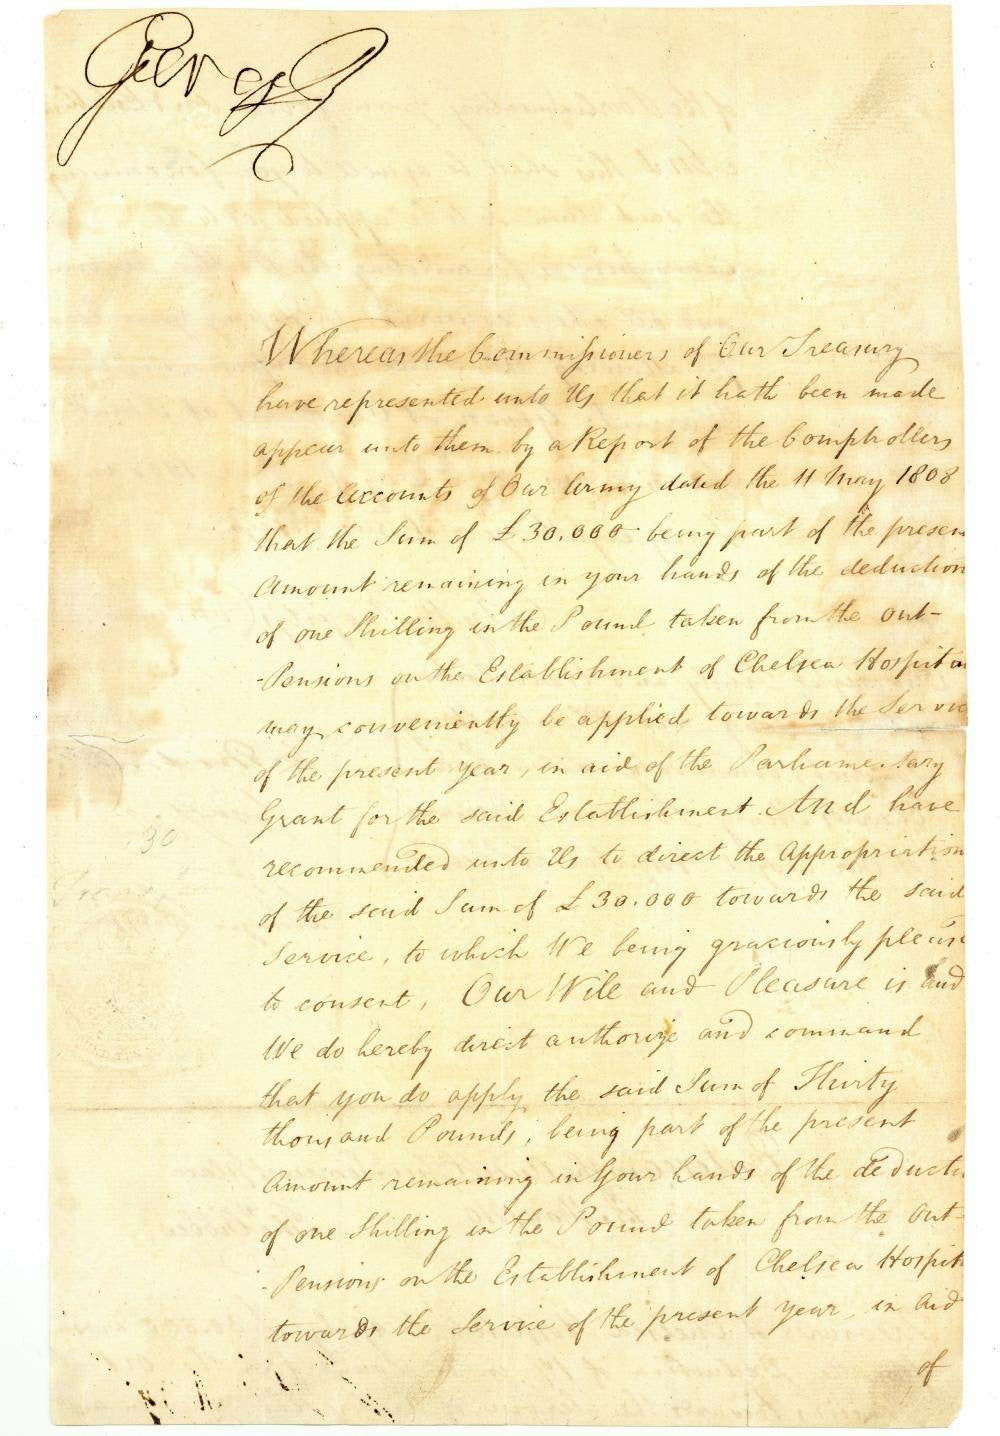 George R
Whereas the Commissioners of Our Treasury
have represented unto Us that it hath been made
appear unto them by a Report of the Comptrollers
of the Accounts of Our Army dated the 11 May 1808
that the Sum of £30,000 being part of the presen
Amount remaining in your hands of the deduction
of one Shilling in the Pound taken from the out-
-Pensions on the Establishment of Chelsea Hospita
may conveniently be applied towards the Servic
of the present year, in aid of the Parliame.tary
Grant for the said Establishment. And have
recommended unto Us to direct the Appropriation
of the said Sum of £30.000 towards the said
Service, to which We being graciously please
to consent, Our Will and Pleasure is and
We do hereby direct authorize and command
that you do apply the said Sum of Thirty
thousand Pounds, being part of the present
Amount remaining in Your hands of the deducti
of one Shilling in the Pound taken from the Out-
-Pensions on the Establishment of Chelsea Hospit
towards the Service of the present year, in Aid
of
30